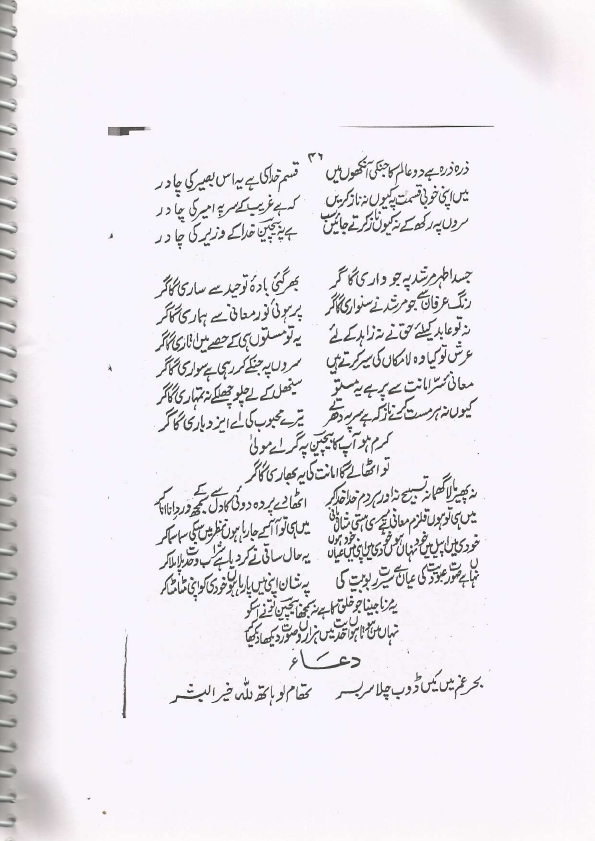 ۳۶
ذرہ ذرہ ہے دو عالم کا جنکی آنکھوں میں قسم خدا کی ہے یہ اس بصیر کی چادر
میں اپنی خوبیٔ قسمت پہ کیوں نہ ناز کریں کہ ہے غریب کے سر پہ امیر کی چادر
سروں پہ رکھ کے نہ کیوں ناز کرتے جائیں سب ہے یہ ہیچین خدا کے وزیر کی چادر
جسد اطہر مرشد پہ جو واری گاگر بھر گئی بادۂ توحید سے ساری گاگر
رنگ عرفان سے جو مرشد نے سنواری گاگر پر ہوئی نور معانی سے ہماری گاگر
نہ تو عابد کیلئے حق نے نہ زاہد کے لئے یہ تو مستوں ہی کے حصے میں اتاری گاگر
عرش تو کیا وہ لامکاں کی سیر کرتے ہیں سروں پہ جنکے کر رہی ہے سواری گاگر
معانی سرّ امانت سے پر ہے یہ مستو سنبھل کے لے چلو چھلکے نہ تمہاری گاگر
کیوں نہ ہر مست کرے ناز کہ ہے سر پہ دھرے تیرے محبوب کی اے ایزد باری گاگر
کرم ہو آپ کا ہیچین پہ گر اے مولیٰ
تو اٹھا لے گا امانت کی یہ بھاری گاگر
نہ پھیر مالا گھما نہ تسبیح نہ اور ہر دم خدا خدا کر اٹھا دے پردہ دوئی کا دل سے کے کچھ
میں ہی تو ہوں قلزم معانی ہے میری ہستی میں ہی تو آئے جا رہا ہوں نظر میں سبکی سما سما کر
خودی میں خود نہاں ہوں خودی میں اپنی میں عیاں خود ہوں یہ حال ساقی نے کر دیا ہے شراب وحدت پلا پلا کر
نہا ہے صورت عبودیت کی عیاں ہے سیرت ربوبیت کی یہ شان اپنی میں پا رہا ہوں خودی کو اپنی مٹا مٹا کر
یہ مرنا جینا جو خلق کا ہے نہ سمجھا ہیچین تو نے اسکو
نہاں میں ہوتا ہوں احدیت میں ہزاروں صورت دیکھا دیکھا کر
دعاء
بحر غم میں میں ڈوب چلا سربسر تھام لو ہاتھ للہ خیر البشر